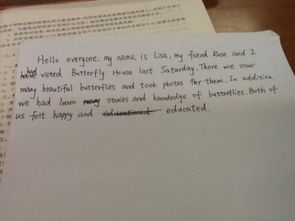 Hello everyone, my name is Lisa, my friend Rose and I
had visted Butterfly House last Saturday. There we saw
many beautiful butterflies and took photos for them. In addition,
we had learn stories and knowledge of butterflies. Both of
us felt happy and educated.